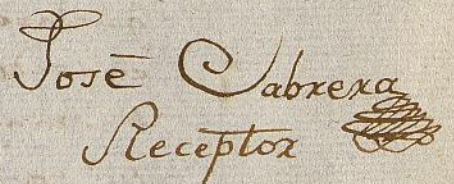 José Cabrera
Receptor